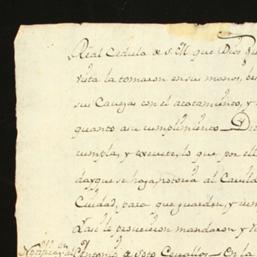 Real Cedula de S. M. que Dios
vista la tomaron en sus manos,
sus Cavezas con el acatamiento, y
quanto a su cumplimiento
cumpla, y execute lo que por ell
da, y que se haga notoria al Cavild
Ciudad, para que guarden, y cum
Y así lo proveieron mandaron, y
Antonio de Soto Cevallos = En la